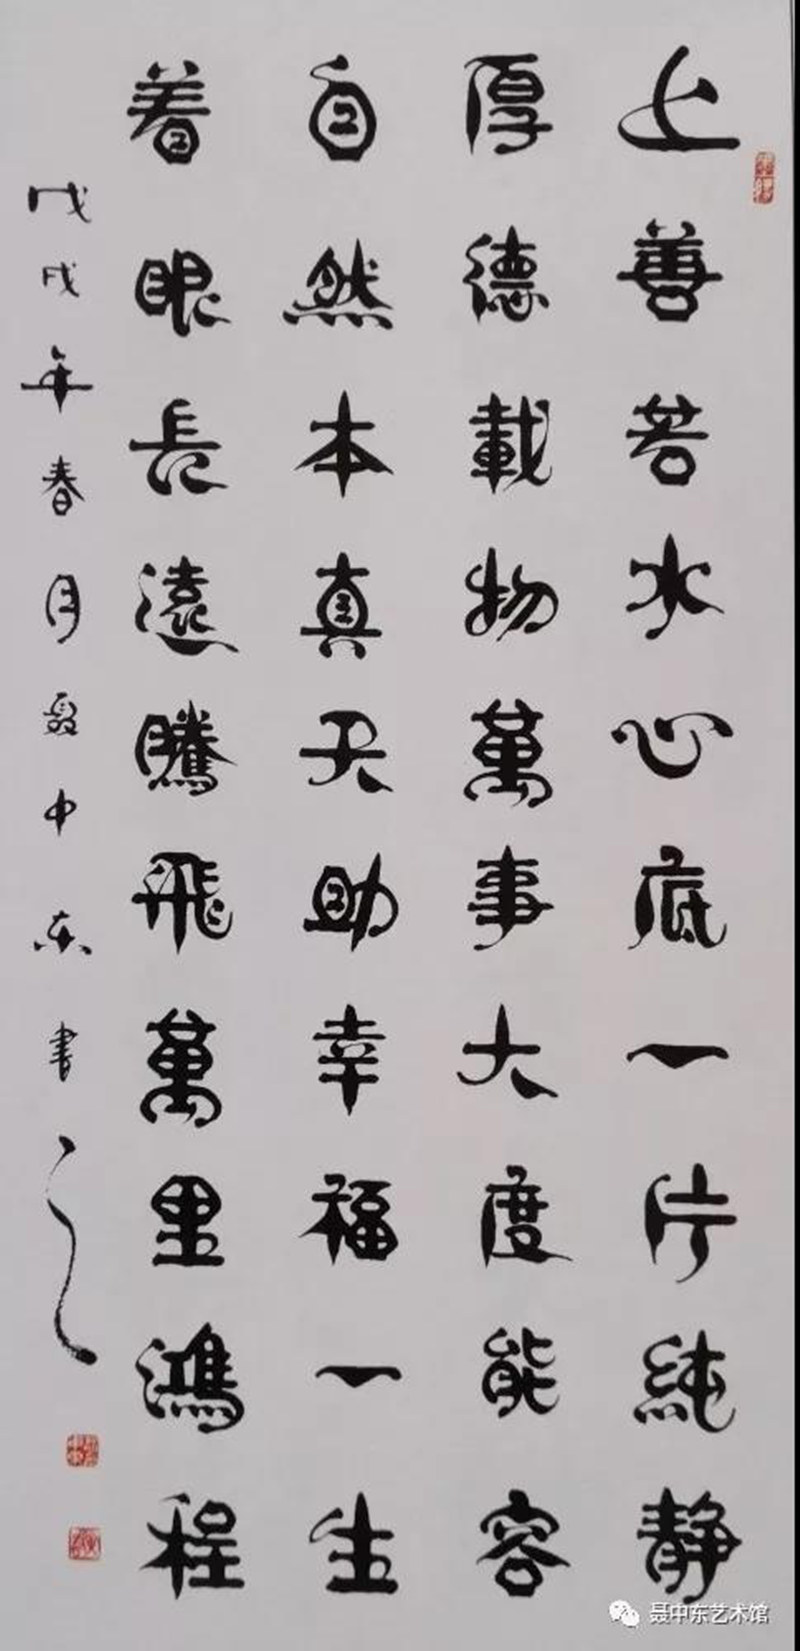 上善若水心底一片純静
厚德載物萬事大度能容
自然本真天助幸福一生
着眼長遠騰飛萬里鴻程
戊戌年春月聂中东書
聂中东艺术馆